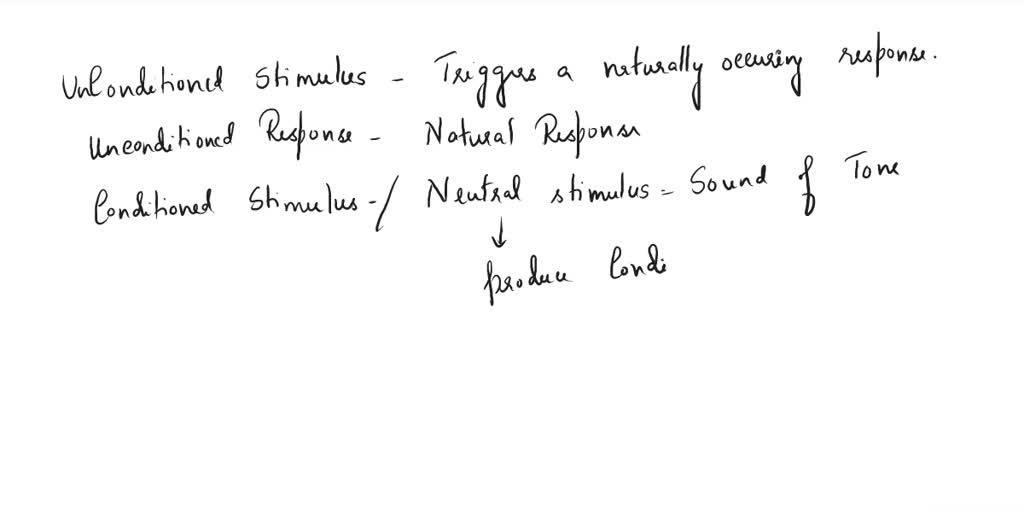 Unconditioned Stimulus - Triggers a naturally occuring response.
Unconditioned Response - Natural Response
Conditioned Stimulus - / Neutral stimulus = Sound of Tone
↓
produce Condi